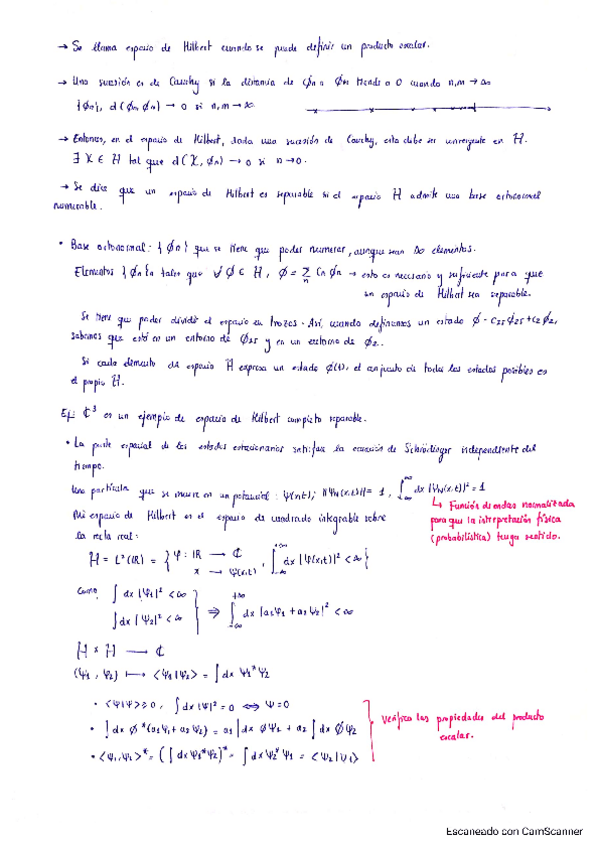 → Se llama espacio de Hilbert cuando se puede definir un producto escalar.
→ Una sucesión es de Cauchy si la distancia de ϕn a ϕm tiende a 0 cuando n,m → ∞
{ϕn}, d(ϕm, ϕn) → 0 si n,m → ∞
→ Entonces, en el espacio de Hilbert, dada una sucesión de Cauchy, esta debe ser convergente en H.
∃ X ∈ H tal que d(X, ϕn) → 0 si n→0.
→ Se dice que un espacio de Hilbert es separable si el espacio H admite una base ortonormal
numerable.
• Base ortonormal: {ϕn} que se tiene que poder numerar, aunque sean ∞ elementos.
Elementos {ϕn} tales que ∀ϕ ∈ H, ϕ = Σ Cn ϕn → esto es necesario y suficiente para que
n
un espacio de Hilbert sea separable.
Se tiene que poder dividir el espacio en trozos. Así, cuando definimos un estado ϕ = c25ϕ25 + c2ϕ2,
sabemos que está en un entorno de ϕ25 y en un entorno de ϕ2.
Si cada elemento del espacio H expresa un estado ϕ(t), el conjunto de todos los estados posibles es
el propio H.
Ej: ℂ³ es un ejemplo de espacio de Hilbert completo separable.
• La parte espacial de los estados estacionarios satisface la ecuación de Schrödinger independiente del
tiempo.
Una partícula que se mueve en un potencial: Ψ(x,t); ||ΨN(x,t)|| = 1, ∫_{-∞}^{+∞} dx |ΨN(x,t)|² = 1
↳ Función de ondas normalizada
para que la interpretación física
(probabilística) tenga sentido.
Mi espacio de Hilbert es el espacio de cuadrado integrable sobre
la recta real:
H = L²(ℝ) = { Ψ: ℝ → ℂ
x → Ψ(x,t), ∫_{-∞}^{+∞} dx |Ψ(x,t)|² < ∞ }
Como, ∫ dx |Ψ1|² < ∞
∫ dx |Ψ2|² < ∞ } ⇒ ∫_{-∞}^{+∞} dx |a1Ψ1 + a2Ψ2|² < ∞
H × H → ℂ
(Ψ1, Ψ2) ↦ <Ψ1|Ψ2> = ∫ dx Ψ1* Ψ2
• <Ψ|Ψ> ≥ 0, ∫ dx |Ψ|² = 0 ⇔ Ψ = 0
• ∫ dx ϕ* (a1Ψ1 + a2Ψ2) = a1 ∫ dx ϕΨ1 + a2 ∫ dx ϕΨ2
• <Ψ1,Ψ2>* = (∫ dx Ψ1* Ψ2)* = ∫ dx Ψ2* Ψ1 = <Ψ2|Ψ1>
Verifica las propiedades del producto
escalar.
Escaneado con CamScanner